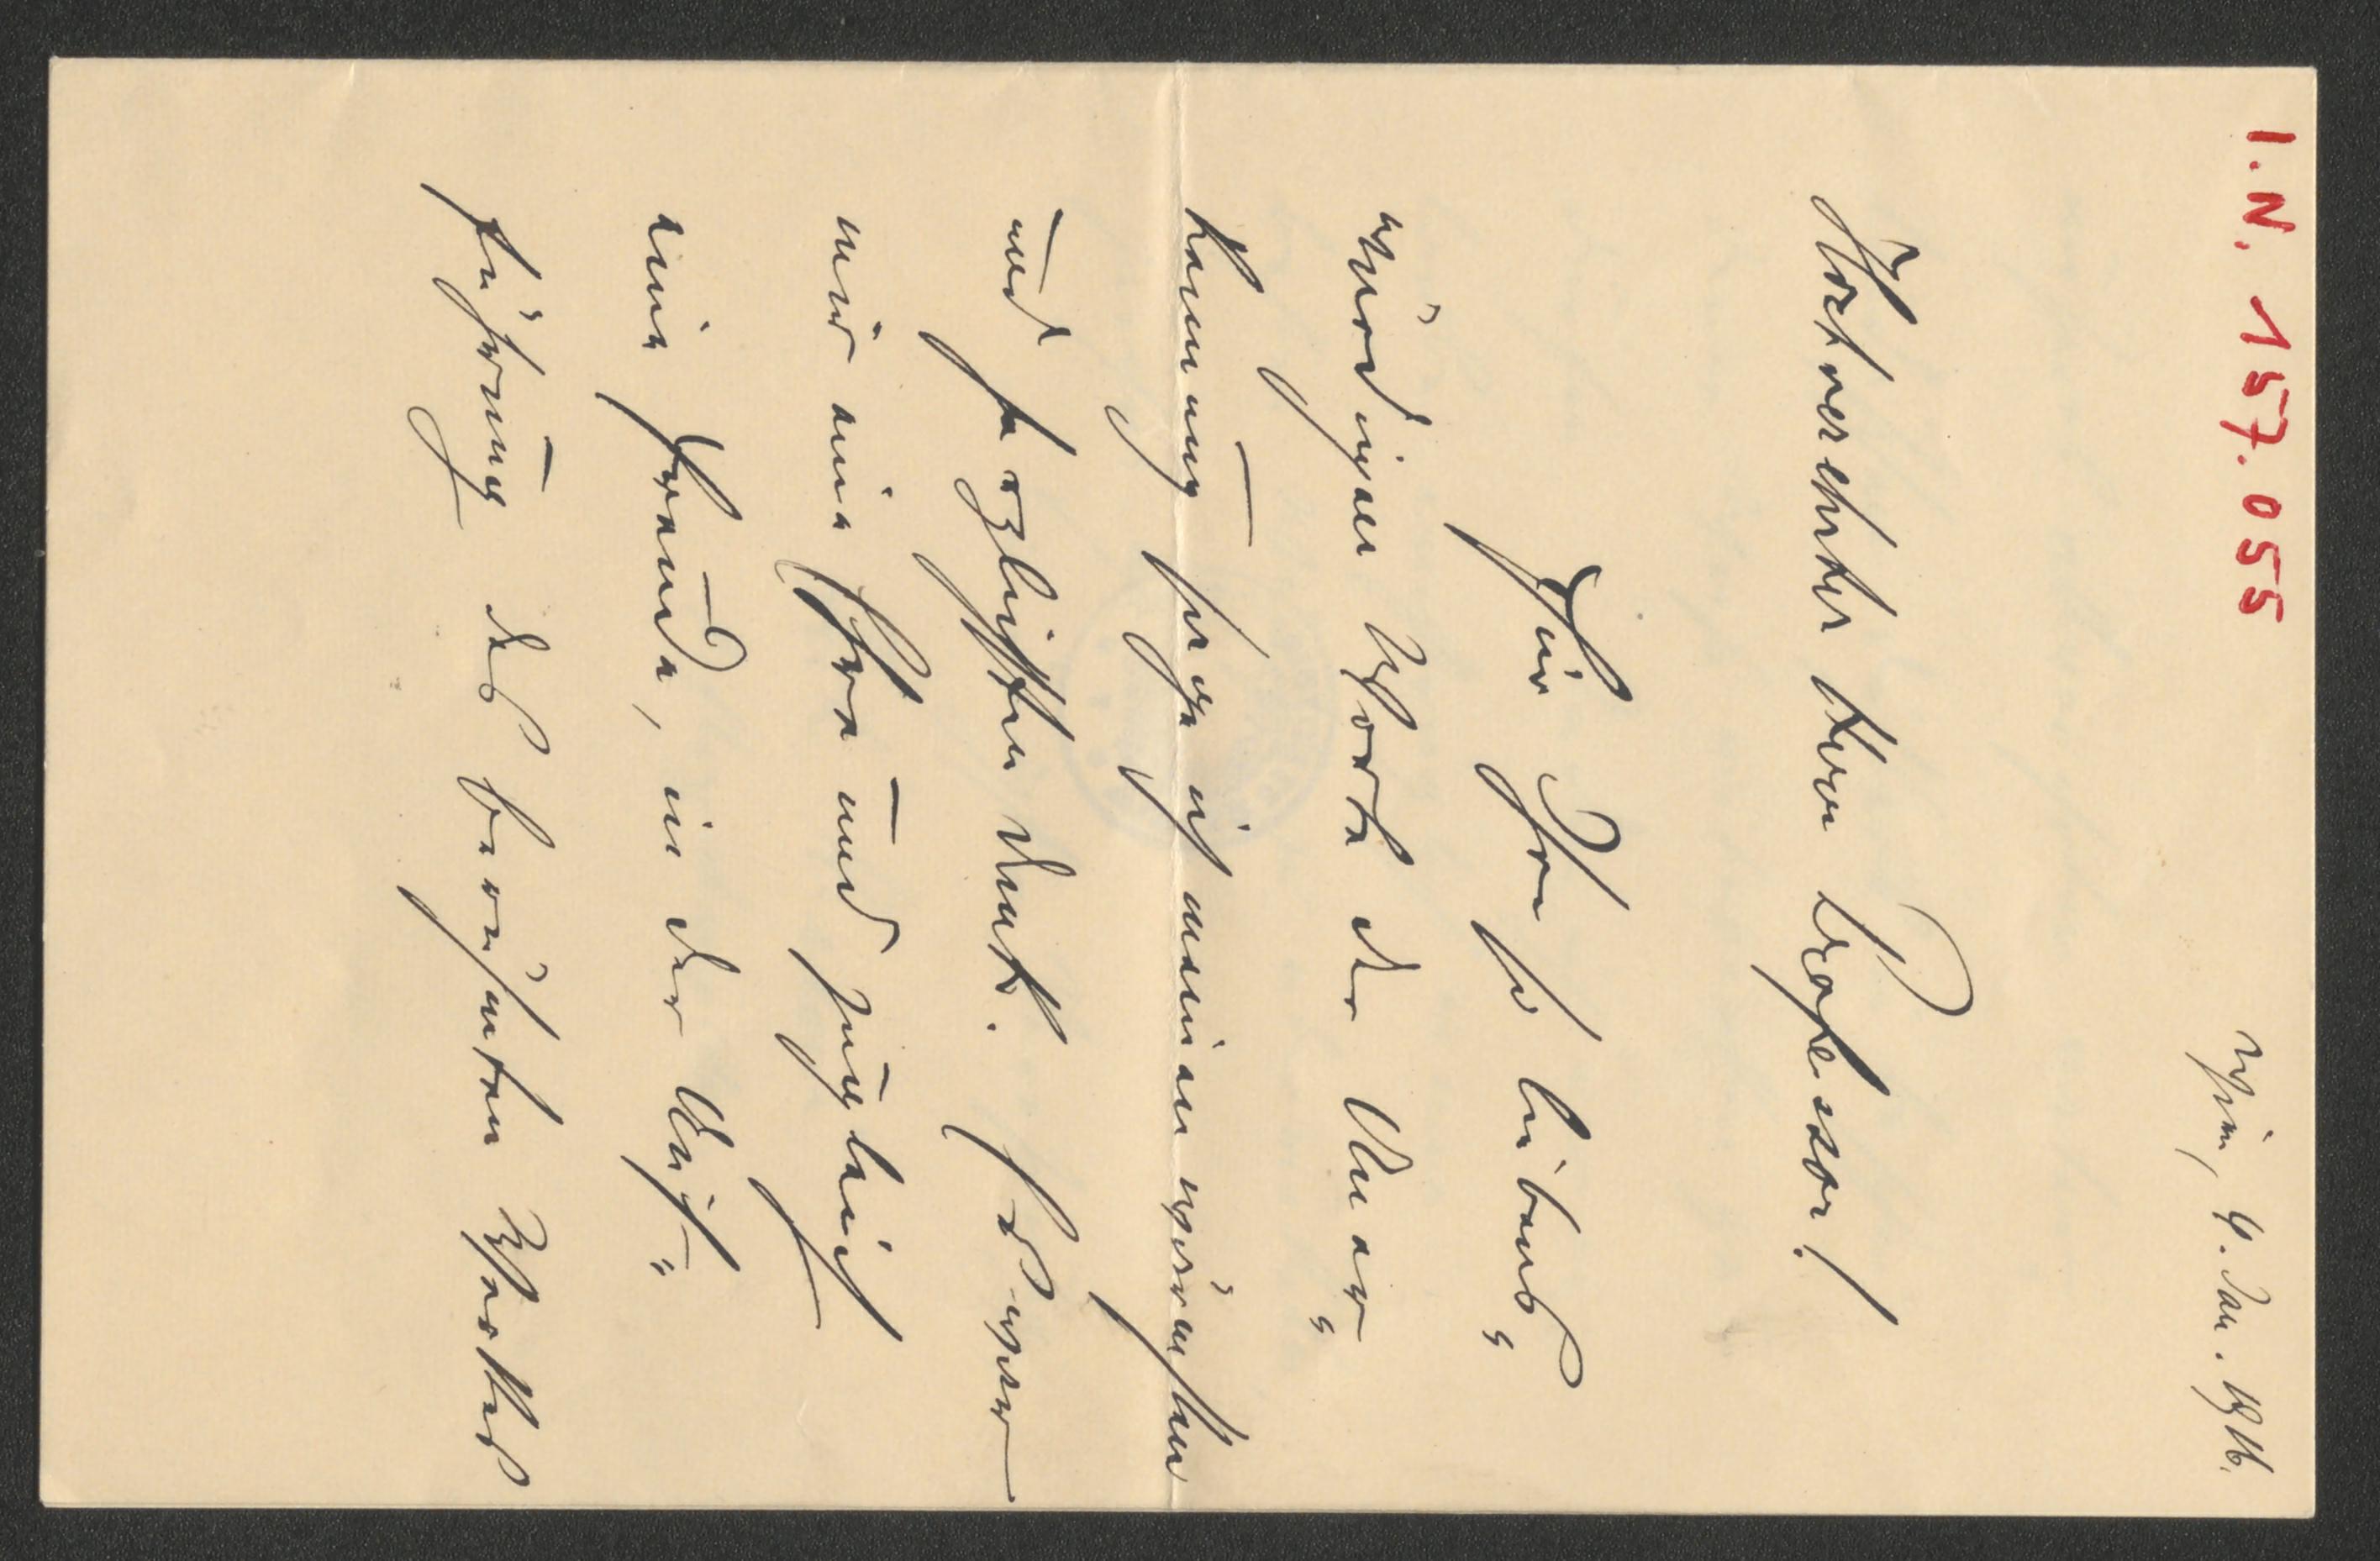 I.N. 157.055
Wien, 4. Jan. 1916.
Hochverehrter Herr Professor!
Für Ihre so liebens„
würdigen Worte der Aner„
kennung sage ich meinen wärmsten
und herzlichsten Dank. Es war
mir eine Ehre und zugleich
eine Freude, in der Auf„
führung des berühmten Werkes